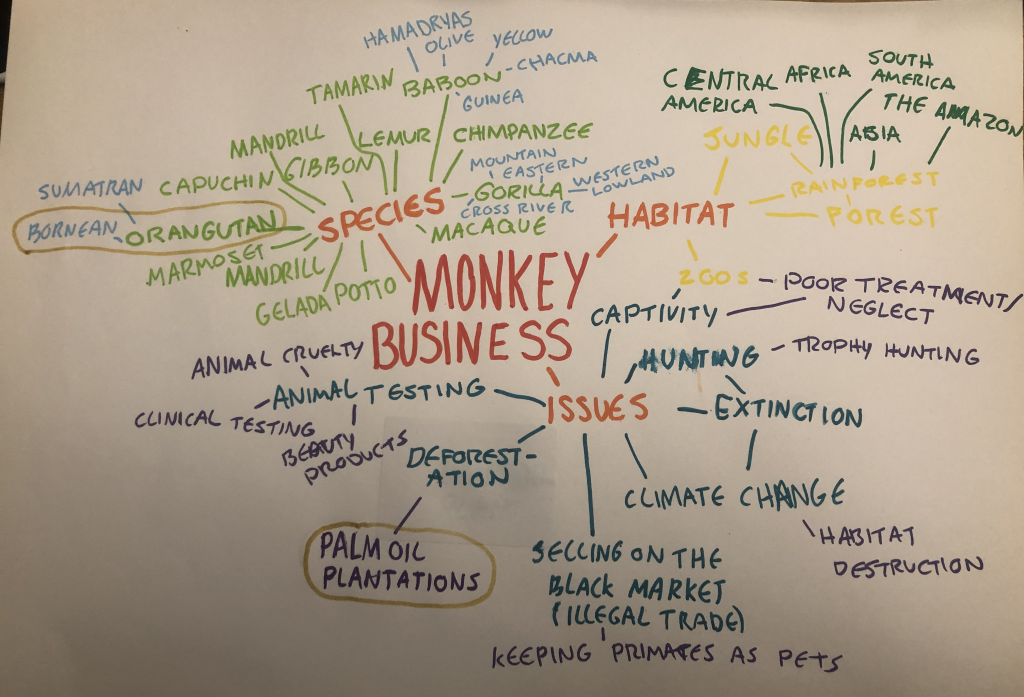 HAMADRYAS
OLIVE
YELLOW
CHACMA
BABOON
GUINEA
TAMARIN
MANDRILL
LEMUR
CHIMPANZEE
GIBBON
CAPUCHIN
MOUNTAIN
EASTERN
GORILLA
WESTERN
LOWLAND
CROSS RIVER
SUMATRAN
BORNEAN
ORANGUTAN
SPECIES
MACAQUE
MARMOSET
MANDRILL
GELADA
POTTO
CENTRAL
AMERICA
AFRICA
SOUTH
AMERICA
THE AMAZON
JUNGLE
ASIA
RAINFOREST
FOREST
HABITAT
MONKEY
BUSINESS
ZOOS
POOR TREATMENT/
NEGLECT
CAPTIVITY
HUNTING
TROPHY HUNTING
ANIMAL CRUELTY
ANIMAL TESTING
CLINICAL TESTING
BEAUTY
PRODUCTS
ISSUES
EXTINCTION
DEFOREST-
ATION
CLIMATE CHANGE
HABITAT
DESTRUCTION
PALM OIL
PLANTATIONS
SELLING ON THE
BLACK MARKET
(ILLEGAL TRADE)
KEEPING PRIMATES AS PETS